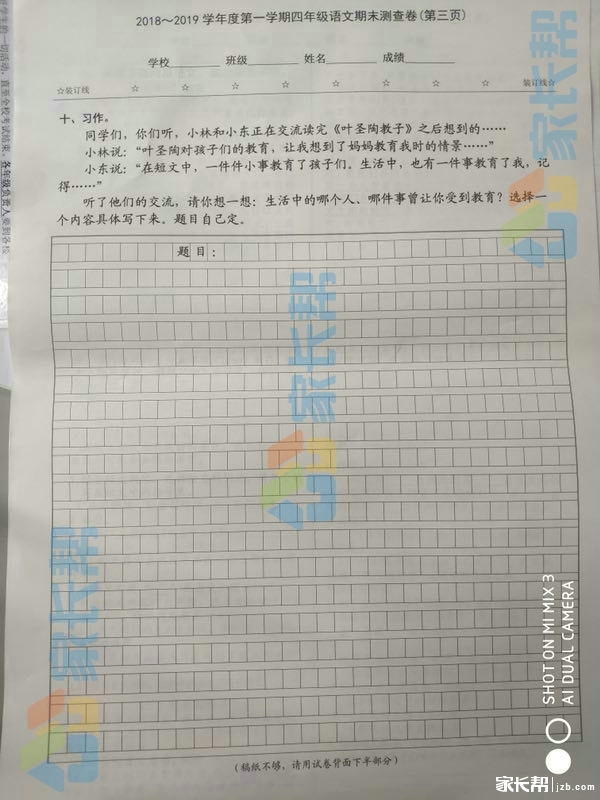 2018～2019学年度第一学期四年级语文期末测查卷(第三页)
学校______ 班级______ 姓名______ 成绩______
☆装订线 ☆ ☆ ☆ ☆ ☆ ☆ ☆ ☆ 装订线☆
十、习作。
同学们，你们听，小林和小东正在交流读完《叶圣陶教子》之后想到的……
小林说：“叶圣陶对孩子们的教育，让我想到了妈妈教育我时的情景……”
小东说：“在短文中，一件件小事教育了孩子们。生活中，也有一件事教育了我，记
得……”
听了他们的交流，请你想一想：生活中的哪个人、哪件事曾让你受到教育？选择一
个内容具体写下来。题目自己定。
题目：
(稿纸不够，请用试卷背面下半部分)
学生的一切活动，直至全校考试结束。各年级负责人要到各校
家长帮
家长帮
家长帮
SHOT ON MI MIX 3
AI DUAL CAMERA
家长帮 jzb.com